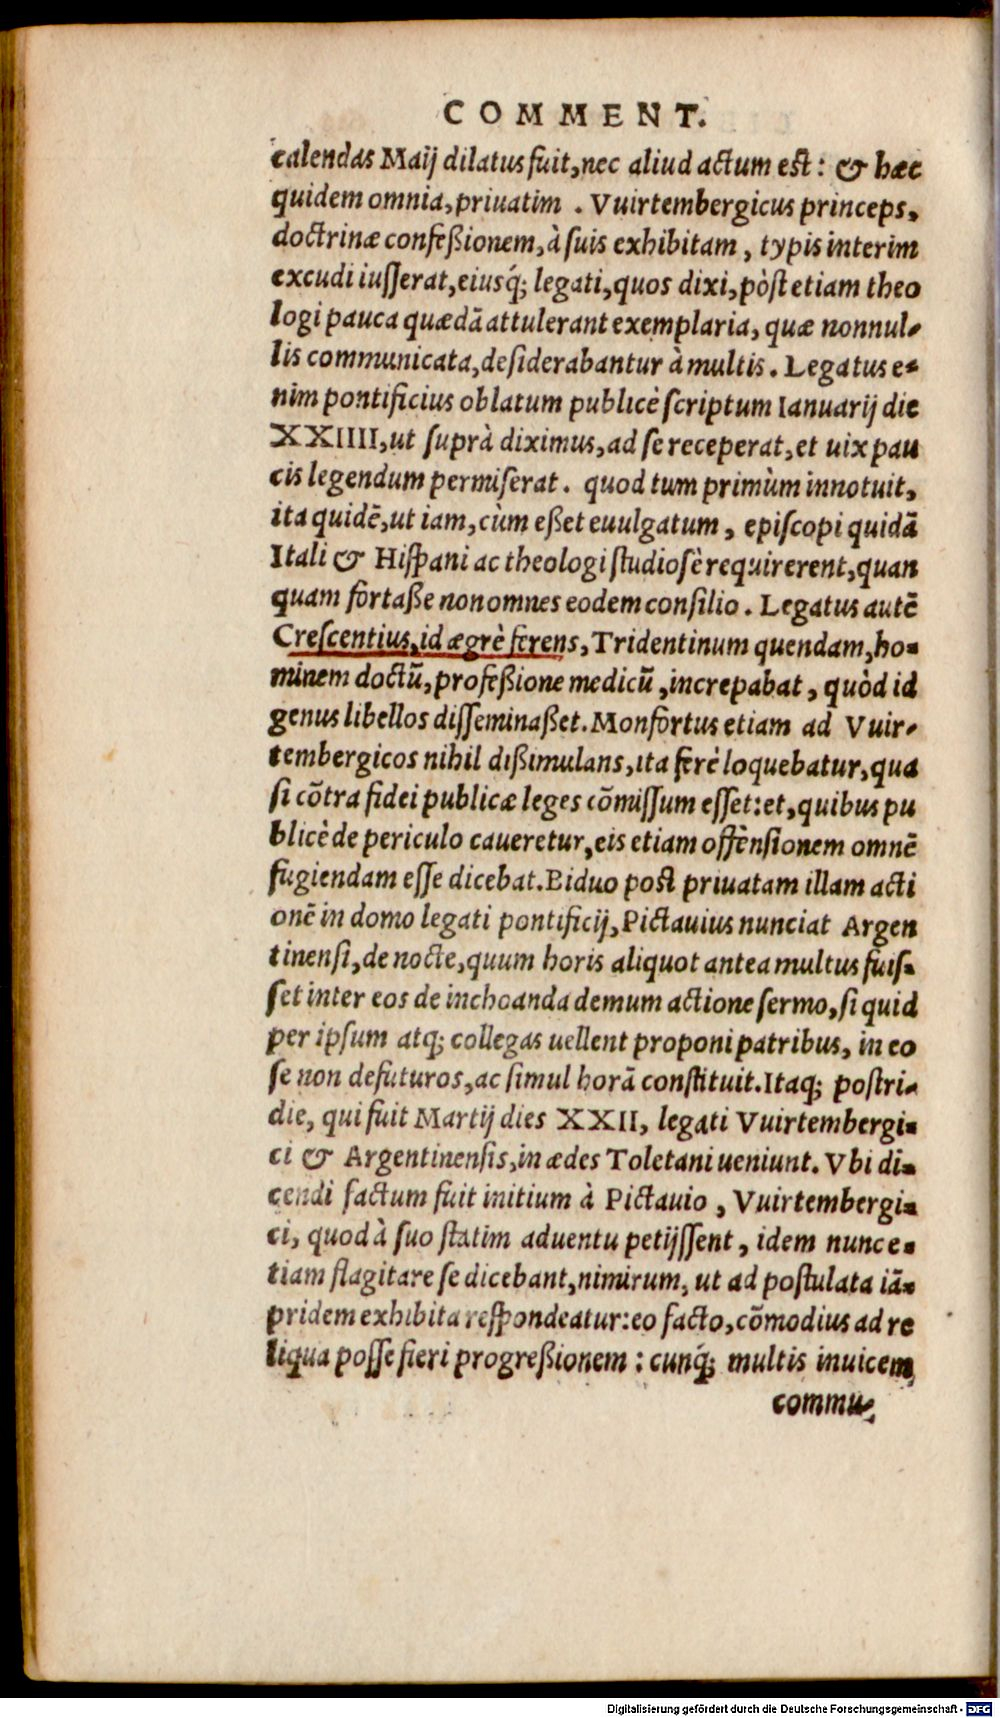 COMMENT.
calendas Maij dilatus fuit, nec aliud actum est: & hæc
quidem omnia, priuatim. Vuirtembergicus princeps,
doctrinæ confeßionem, à suis exhibitam, typis interim
excudi iusserat, eiusq́; legati, quos dixi, pòst etiam theo
logi pauca quædā attulerant exemplaria, quæ nonnul-
lis communicata, desiderabantur à multis. Legatus e-
nim pontificius oblatum publicè scriptum Ianuarij die
XXIIII, ut suprà diximus, ad se receperat, et uix pau
cis legendum permiserat. quod tum primùm innotuit,
ita quidē, ut iam, cùm eßet euulgatum, episcopi quidā
Itali & Hispani ac theologi studiosè requirerent, quan
quam fortaße non omnes eodem consilio. Legatus autē
Crescentius, id ægrè ferens, Tridentinum quendam, ho-
minem doctū, profeßione medicū, increpabat, quòd id
genus libellos disseminaßet. Monfortus etiam ad Vuir-
tembergicos nihil dißimulans, ita ferè loquebatur, qua
si cōtra fidei publicæ leges cōmissum esset: et, quibus pu
blicè de periculo caueretur, eis etiam offensionem omnē
fugiendam esse dicebat. Biduo post priuatam illam acti
onē in domo legati pontificij, Pictauius nunciat Argen
tinensi, de nocte, quum horis aliquot antea multus fuis-
set inter eos de inchoanda demum actione sermo, si quid
per ipsum atq; collegas uellent proponi patribus, in eo
se non defuturos, ac simul horā constituit. Itaq; postri-
die, qui fuit Martij dies XXII, legati Vuirtembergi-
ci & Argentinensis, in ædes Toletani ueniunt. Vbi di-
cendi factum fuit initium à Pictauio, Vuirtembergi-
ci, quod à suo statim aduentu petijssent, idem nunc e-
tiam flagitare se dicebant, nimirum, ut ad postulata iā-
pridem exhibita respondeatur: eo facto, cōmodius ad re
liqua posse fieri progreßionem: cunq́; multis inuicem
commu-
Digitalisierung gefördert durch die Deutsche Forschungsgemeinschaft - DFG